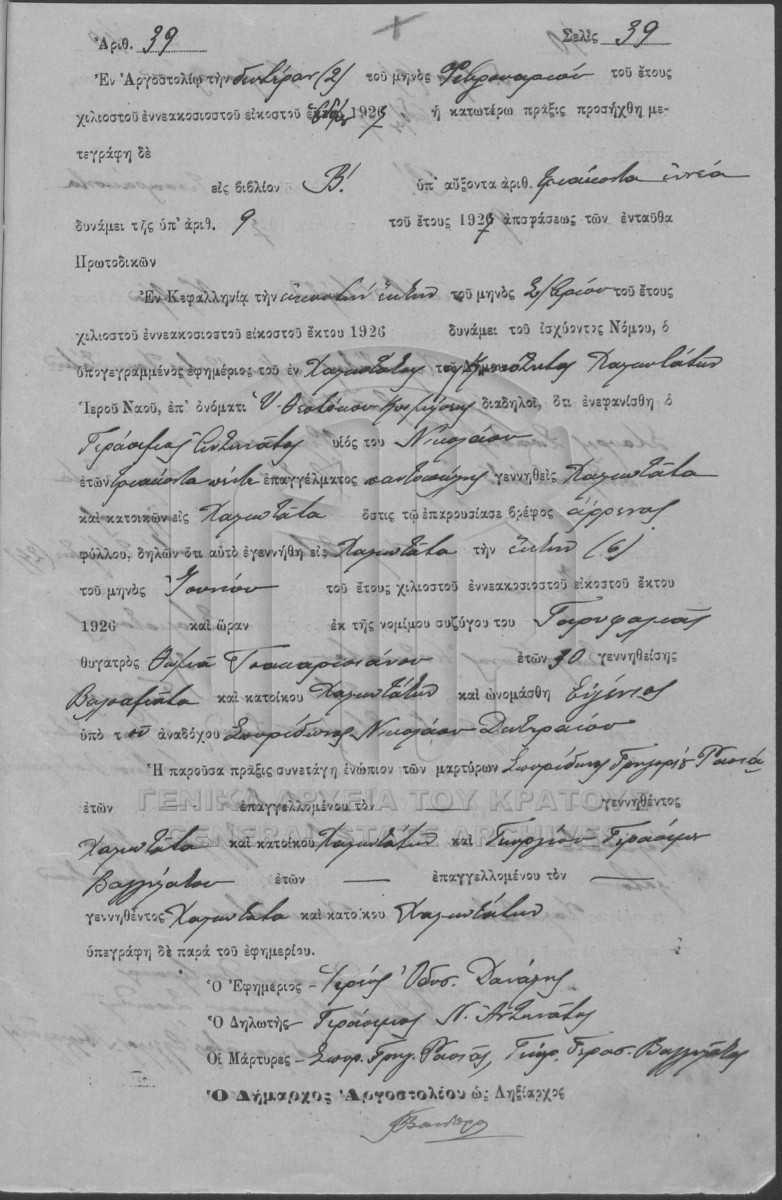 Ἀριθ. 39 Σελὶς 39
Ἐν Ἀργοστολίῳ τὴν δευτέραν (2) τοῦ μηνὸς Φεβρουαρίου τοῦ ἔτους
χιλιοστοῦ ἐννεακοσιοστοῦ εἰκοστοῦ ἑβδόμου 1927 ἡ κατωτέρω πρᾶξις προσήχθη με-
τεγράφη δὲ
εἰς βιβλίον Β! ὑπ' αὔξοντα ἀριθ. τριάκοντα ἐννέα
δυνάμει τῆς ὑπ' ἀριθ. 9 τοῦ ἔτους 1927 ἀποφάσεως τῶν ἐνταῦθα
Πρωτοδικῶν
Ἐν Κεφαλληνίᾳ τὴν εἰκοστὴν ἕκτην τοῦ μηνὸς 7/βρίου τοῦ ἔτους
χιλιοστοῦ ἐννεακοσιοστοῦ εἰκοστοῦ ἕκτου 1926 δυνάμει τοῦ ἰσχύοντος Νόμου, ὁ
ὑπογεγραμμένος ἐφημέριος τοῦ ἐν Χαλιωτάτοις τῆς Κοινότητος Χαλιωτάτων
Ἱεροῦ Ναοῦ, ἐπ' ὀνόματι Υ. Θεοτόκου Κοιμήσεως διαδηλοῖ, ὅτι ἐνεφανίσθη ὁ
Γεράσιμος Ἀντυπάτος υἱὸς τοῦ Νικολάου
ἐτῶν τριάκοντα πέντε ἐπαγγέλματος παντοπώλης γεννηθεὶς Χαλιωτάτα
καὶ κατοικῶν εἰς Χαλιωτάτα ὅστις τῷ ἐπαρουσίασε βρέφος ἄρρενος
φύλλου, δηλῶν ὅτι αὐτὸ ἐγεννήθη εἰς Χαλιωτάτα τὴν ἕκτην (6)
τοῦ μηνὸς Ἰουνίου τοῦ ἔτους χιλιοστοῦ ἐννεακοσιοστοῦ εἰκοστοῦ ἕκτου
1926 καὶ ὥραν ἐκ τῆς νομίμου συζύγου του Γαρυφαλιᾶς
θυγάτρὸς Θωμᾶ Τσακαρισιάνου ἐτῶν 30 γεννηθείσης
Βαλσαμάτα καὶ κατοίκου Χαλιωτάτων καὶ ὠνομάσθη Εὐγένιος
ὑπὸ τοῦ ἀναδόχου Σπυρίδωνος Νικολάου
Ἡ παροῦσα πρᾶξις συνετάγη ἐνώπιον τῶν μαρτύρων Σπυρίδωνος Γρηγορίου
ἐτῶν ἐπαγγελλομένου τὸν γεννηθέντος
Χαλιωτάτα καὶ κατοίκου Χαλιωτάτων καὶ Γεωργίου Γερασίμου
Βαλλιάτου ἐτῶν — ἐπαγγελλομένου τὸν —
γεννηθέντος Χαλιωτάτα καὶ κατοίκου Χαλιωτάτων
ὑπεγράφη δὲ παρὰ τοῦ ἐφημερίου.
Ὁ Ἐφημέριος – Ἱερεὺς Ὀδυσ. Δανάλης
Ὁ Δηλωτὴς – Γεράσιμος Ν. Ἀντυπάτος
Οἱ Μάρτυρες – Σπυρ. Γρηγ. Γεώργ. Γερασ. Βαλλιάτος
Ὁ Δήμαρχος Ἀργοστολίου ὡς Ληξίαρχος
ΓΕΝΙΚΑ ΑΡΧΕΙΑ ΤΟΥ ΚΡΑΤΟΥΣ
GENERAL STATE ARCHIVES